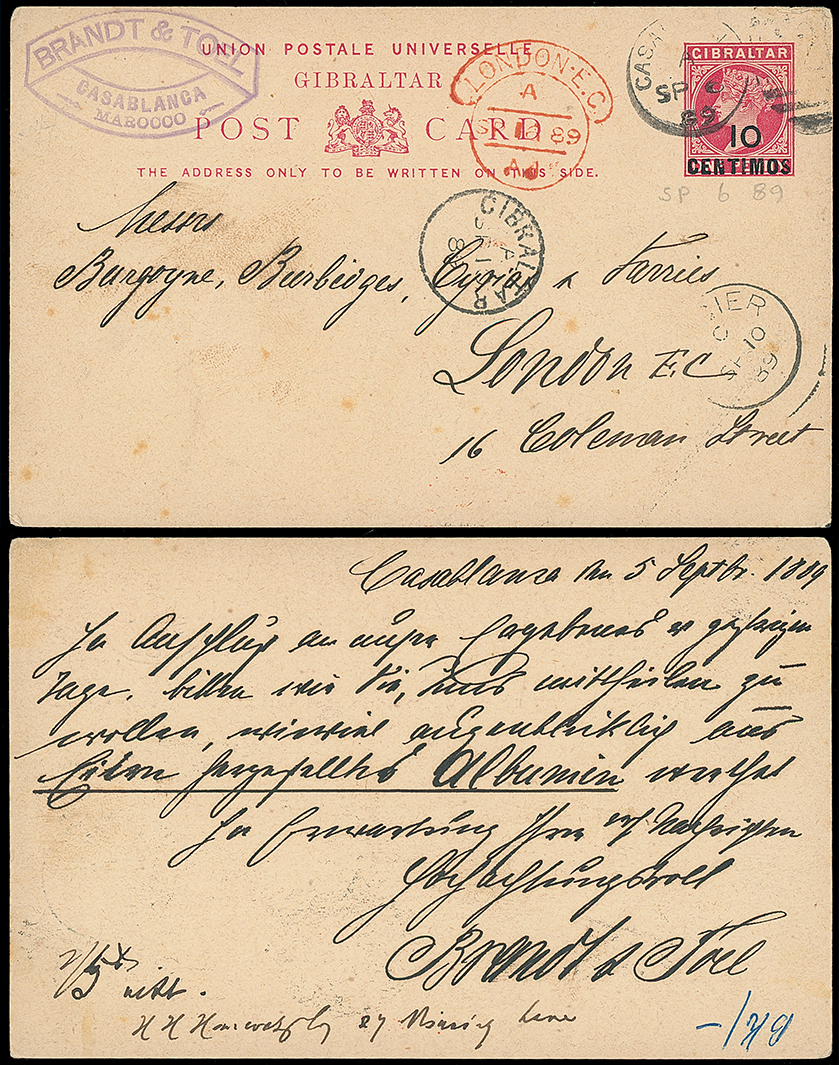 BRANDT & TOEL
CASABLANCA
MAROCCO
UNION POSTALE UNIVERSELLE
GIBRALTAR
POST CARD
THE ADDRESS ONLY TO BE WRITTEN ON THIS SIDE.
LONDON·E.C.
A
SP 89
GIBRALTAR
10
CENTIMOS
SP 6
89
SP 6 89
GIBRALTAR
A
SP
SP 10
89
Messrs
Burgoyne, Burbidges, Cyriax & Farries
London E.C.
16 Coleman Street
Casablanca den 5 Septbr. 1889
In Anschluss an unser Ergebenes v. gestrigen
Tage, bitten wir Sie, uns mittheilen zu
wollen, wieviel augenblicklich aus
Eiern hergestelltes Albumin werthet
In Erwartung Ihrer Nachrichten
Hochachtungsvoll
Brandt & Toel
27 Mincing Lane